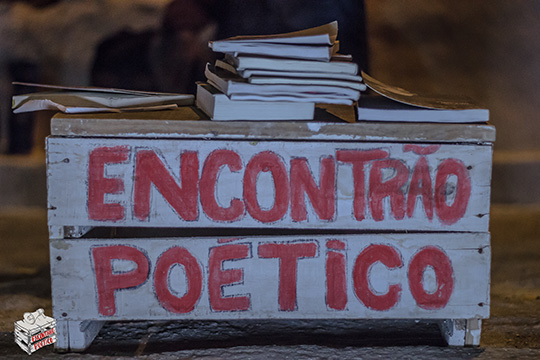 ENCONTRÃO
POÉTICO